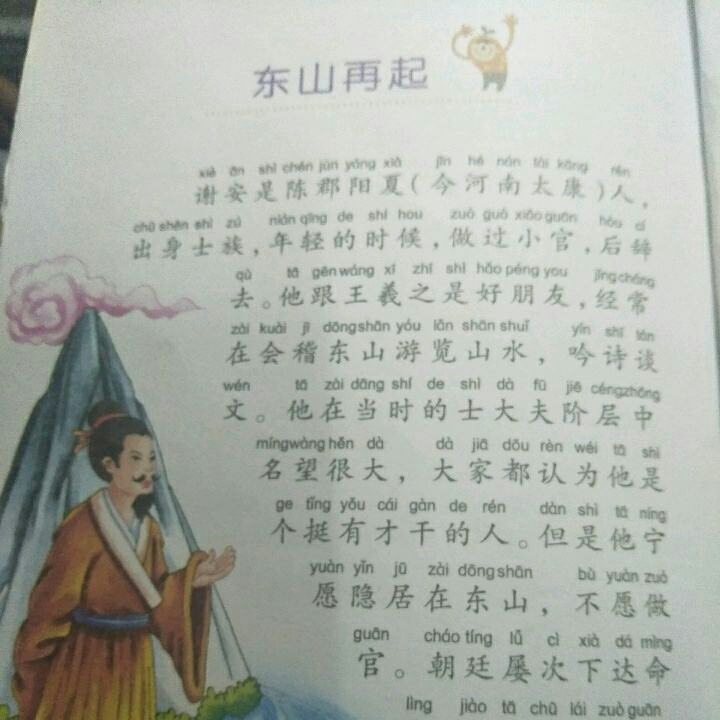 东山再起
xiè ān shì chén jùn yáng xià jīn hé nán tài kāng rén
谢安是陈郡阳夏(今河南太康)人，
chū shēn shì zú nián qīng de shí hou zuò guò xiǎo guān hòu cí
出身士族，年轻的时候，做过小官，后辞
qù tā gēn wáng xī zhī shì hǎo péng you jīng cháng
去。他跟王羲之是好朋友，经常
zài kuài jī dōng shān yóu lǎn shān shuǐ yín shī tán
在会稽东山游览山水，吟诗谈
wén tā zài dāng shí de shì dà fū jiē céng zhōng
文。他在当时的士大夫阶层中
míng wàng hěn dà dà jiā dōu rèn wéi tā shì
名望很大，大家都认为他是
ge tǐng yǒu cái gàn de rén dàn shì tā nìng
个挺有才干的人。但是他宁
yuàn yǐn jū zài dōng shān bù yuàn zuò
愿隐居在东山，不愿做
guān cháo tíng lǚ cì xià dá mìng
官。朝廷屡次下达命
lìng jiào tā chū lái zuò guān